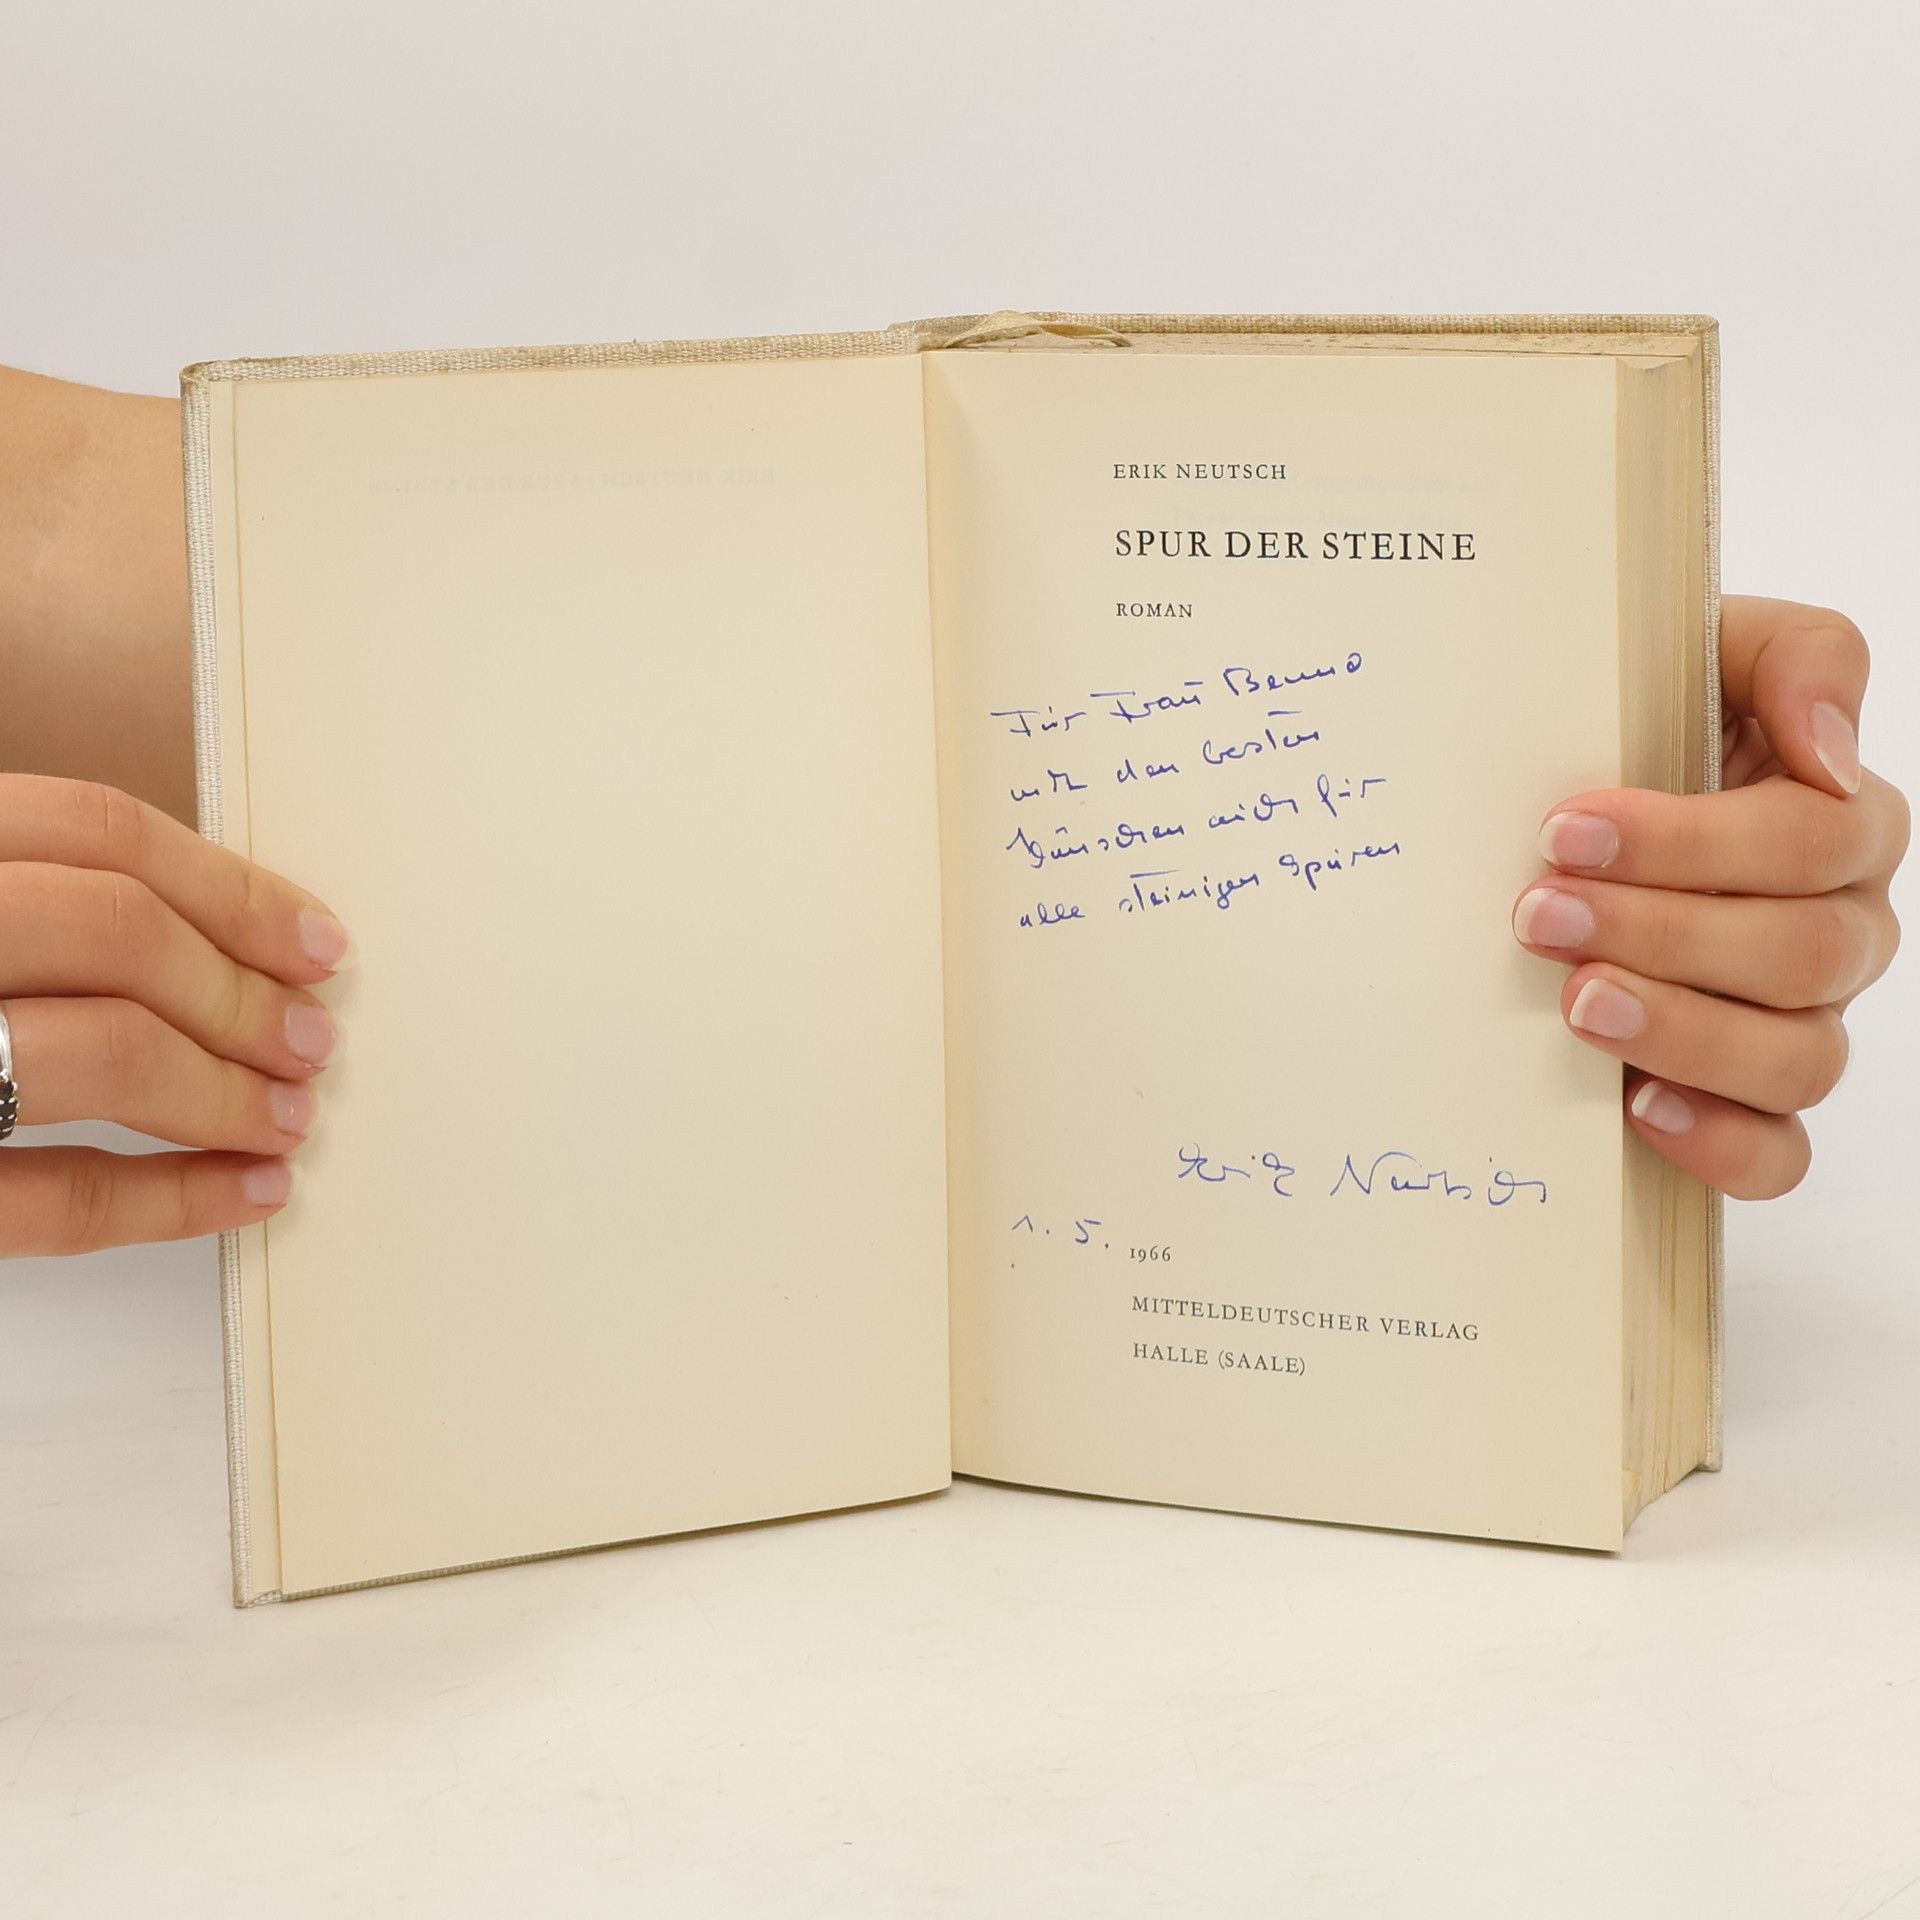 ERIK NEUTSCH
SPUR DER STEINE
ROMAN
Für Frau Benno
mit den besten
Wünschen auch für
alle steinigen Spuren
Erik Neutsch
1. 5. 1966
MITTELDEUTSCHER VERLAG
HALLE (SAALE)